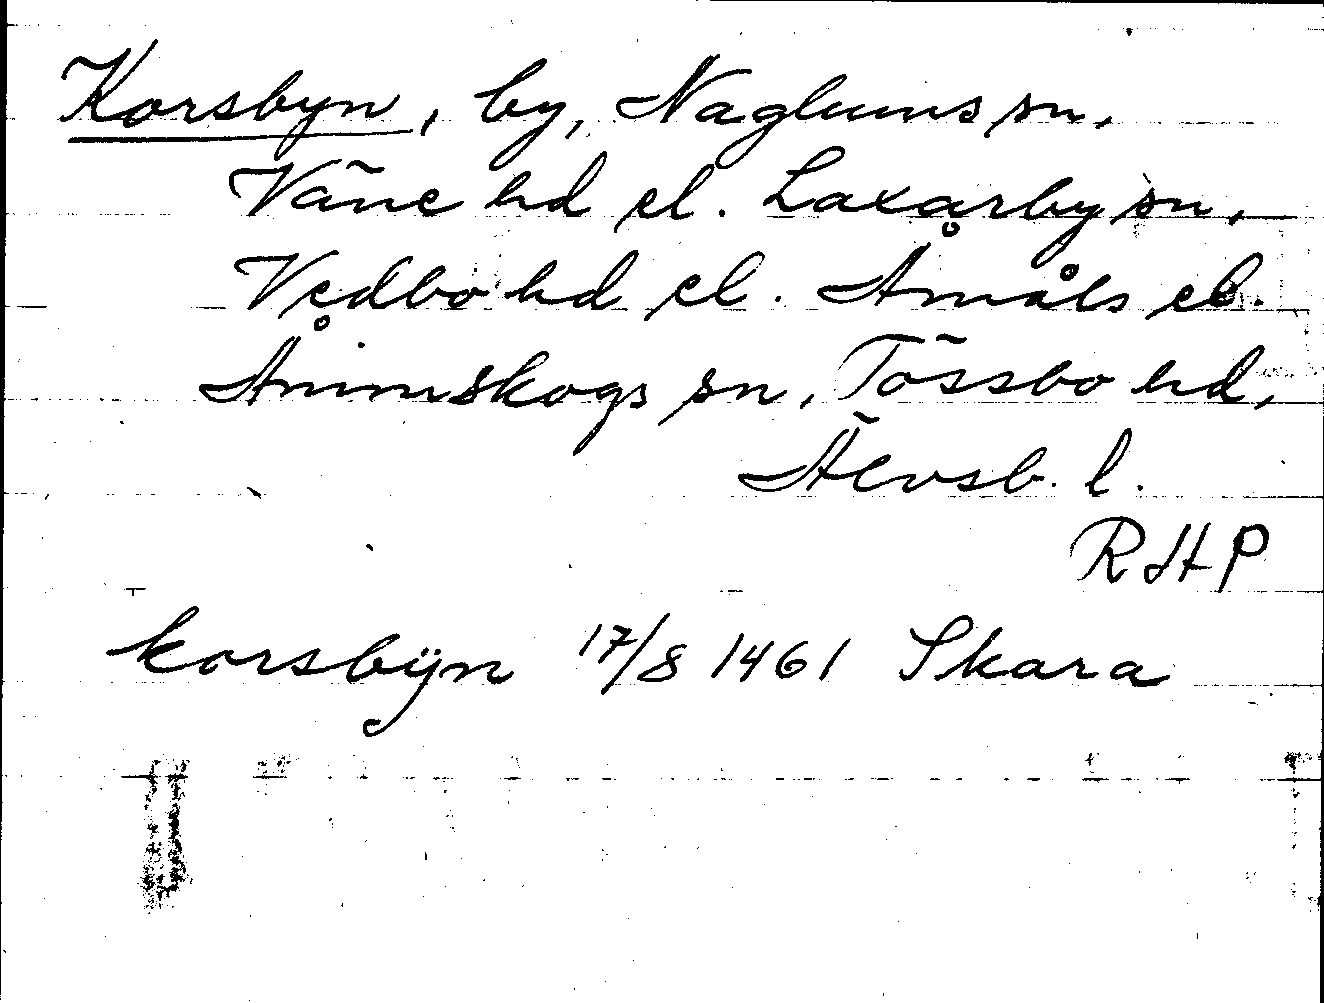 Korsbyn, by, Naglums sn,
Väne hd el. Laxarby sn,
Vedbo hd el. Åmåls el.
Ånimskogs sn, Tössbo hd,
Älvsb. l.
RHP
korsbÿn 17/8 1461 Skara